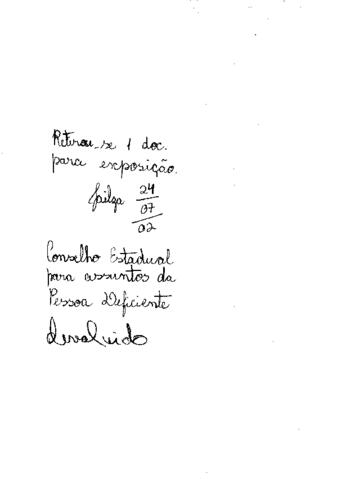 Retirou-se 1 doc.
para exposição.
Jailza 24
07
02
Conselho Estadual
para assuntos da
Pessoa Deficiente
devolvido